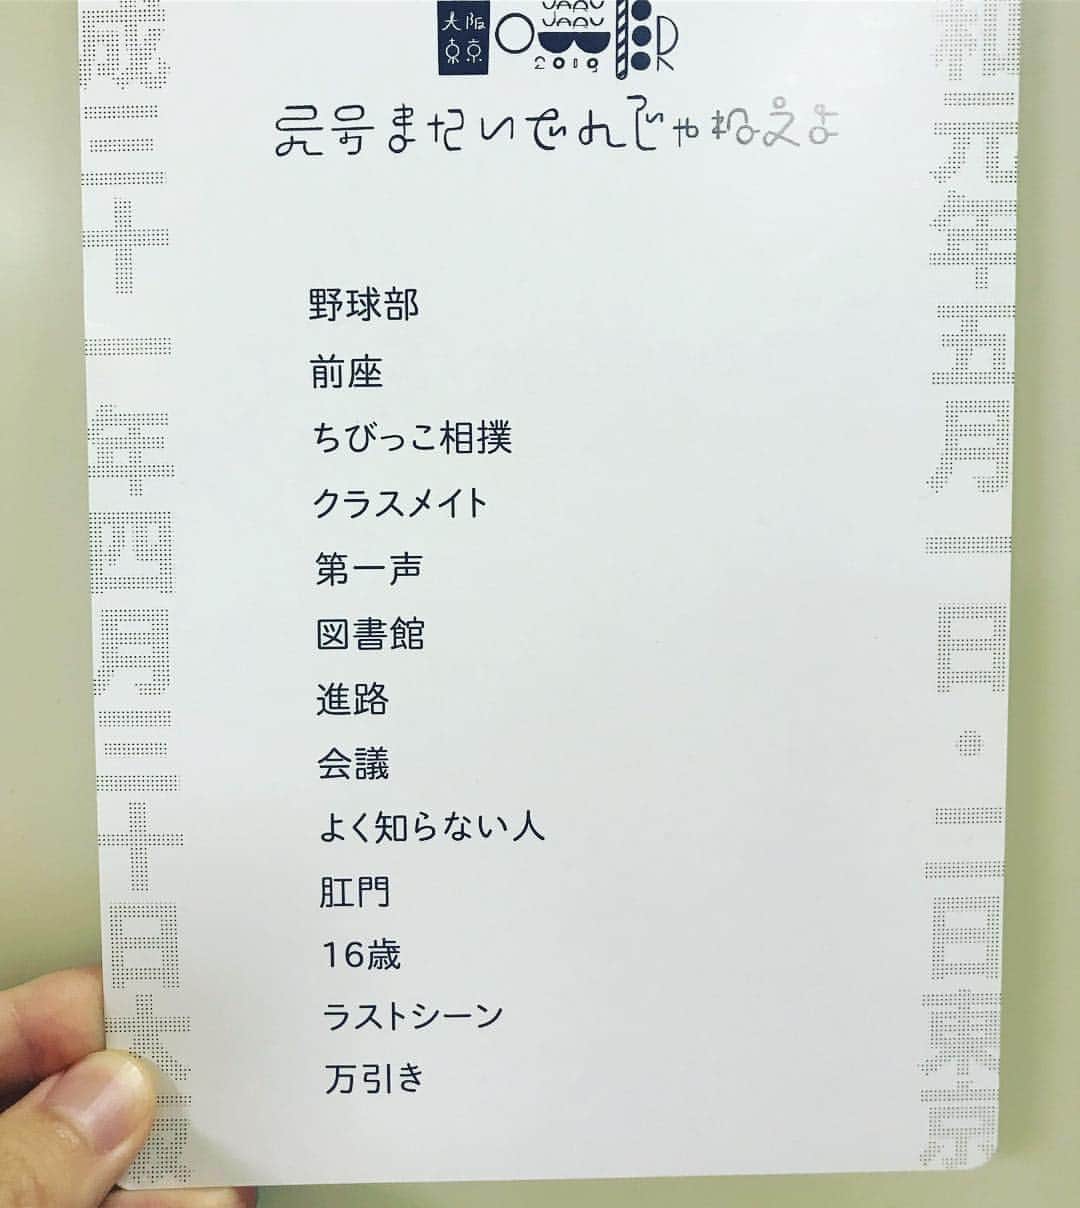 大阪
東京
JARU
JARU
OWER
2019
元号またいでんじゃねえよ
野球部
前座
ちびっこ相撲
クラスメイト
第一声
図書館
進路
会議
よく知らない人
肛門
16歳
ラストシーン
万引き
成三十一年四月三十日大阪
和元年五月一日・二日東京